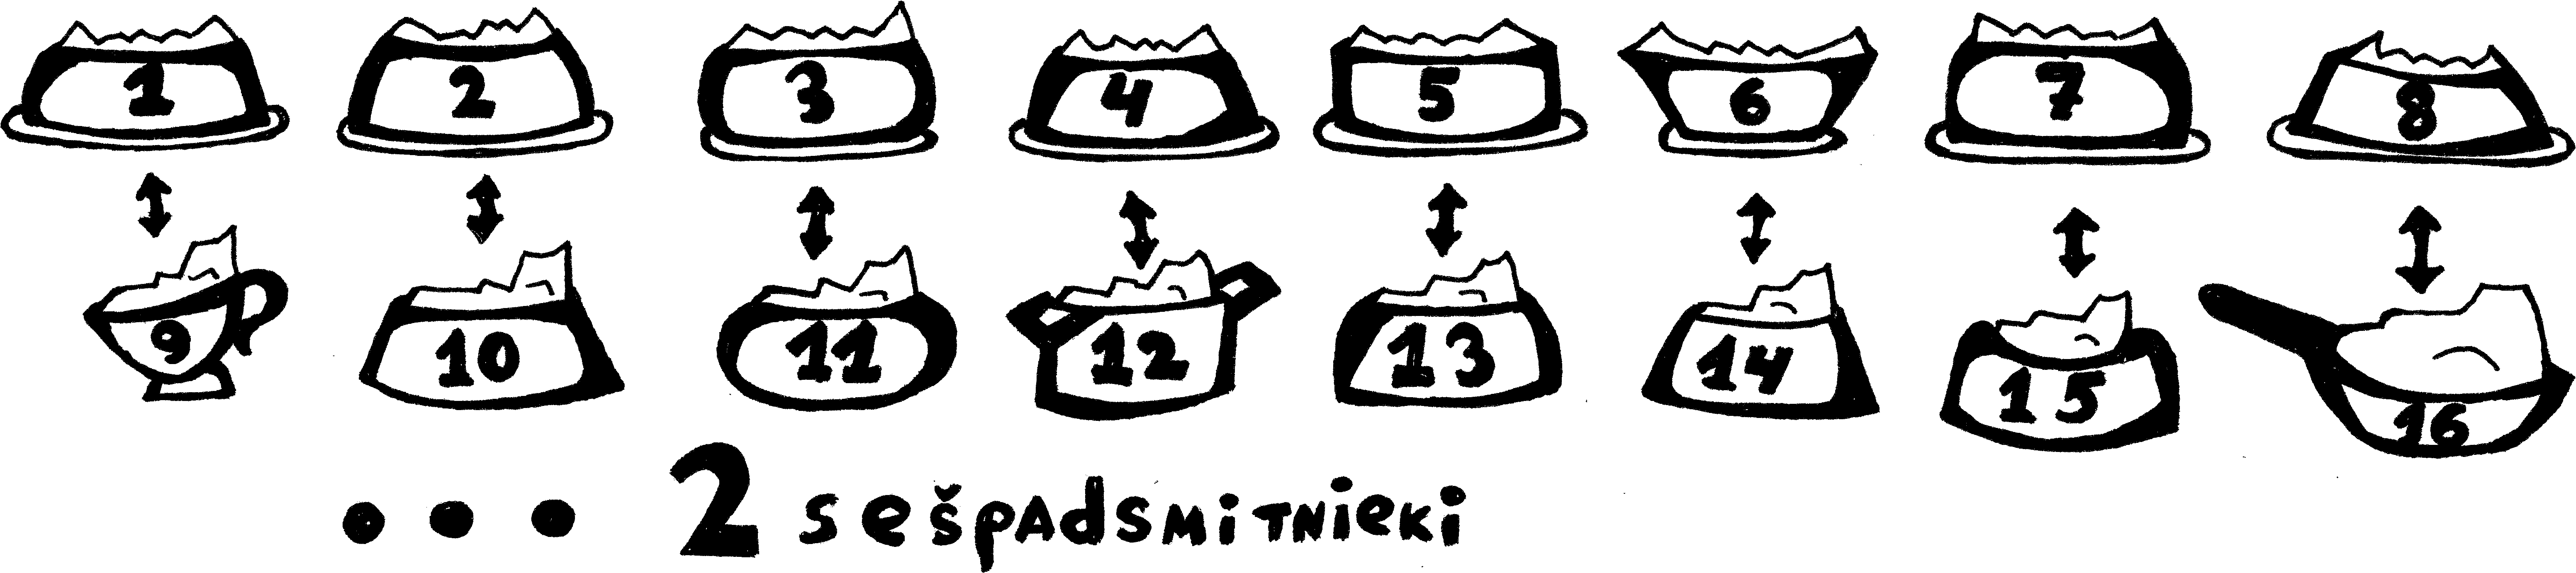 1 2 3 4 5 6 7 8
9 10 11 12 13 14 15 16
... 2 sešpadsmitnieki